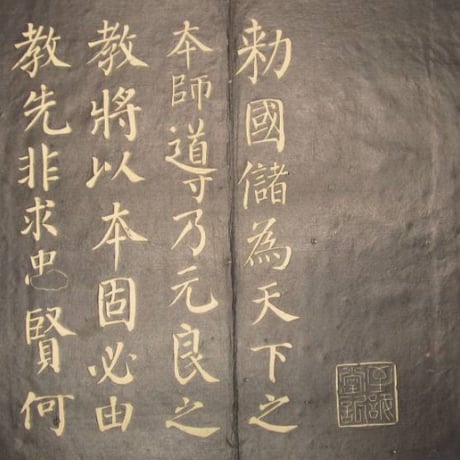 勅國儲為天下之
本師導乃元良之
教將以本固必由
教先非求忠賢何